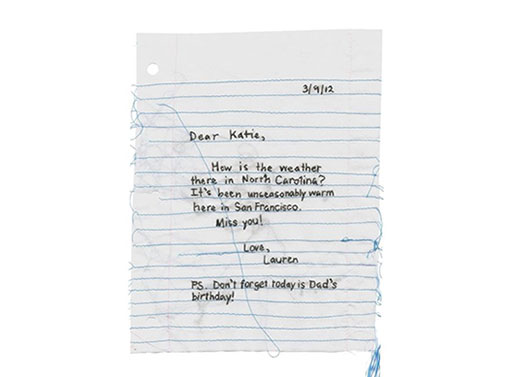 3/9/12
Dear Katie,
How is the weather
there in North Carolina?
It's been unseasonably warm
here in San Francisco.
Miss you!
Love,
Lauren
PS. Don't forget today is Dad's
birthday!